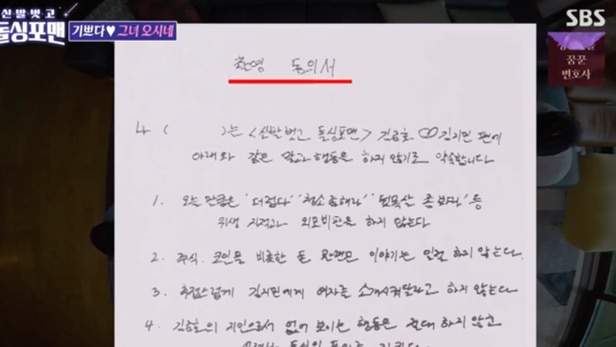 신발 벗고
돌싱포맨
기쁘다♥그녀 오시네
SBS
꿈꾼
변호사
촬영 동의서
나 ( )는 <신발벗고 돌싱포맨> 김준호 ♡ 김지민 편에
아래와 같은 말과 행동은 하지 않기로 약속합니다
1. 오늘 만큼은 "더럽다" "청소 좀 해라" 등
위생 지적과 외모비판은 하지 않는다
2. 주식. 코인을 비롯한 돈 이야기는 일절 하지 않는다.
3. 추접스럽게 김지민에게 여자를 소개시켜달라고 하지 않는다.
4. 김준호의 지인으로서 없어 보이는 행동은 절대 하지 않고